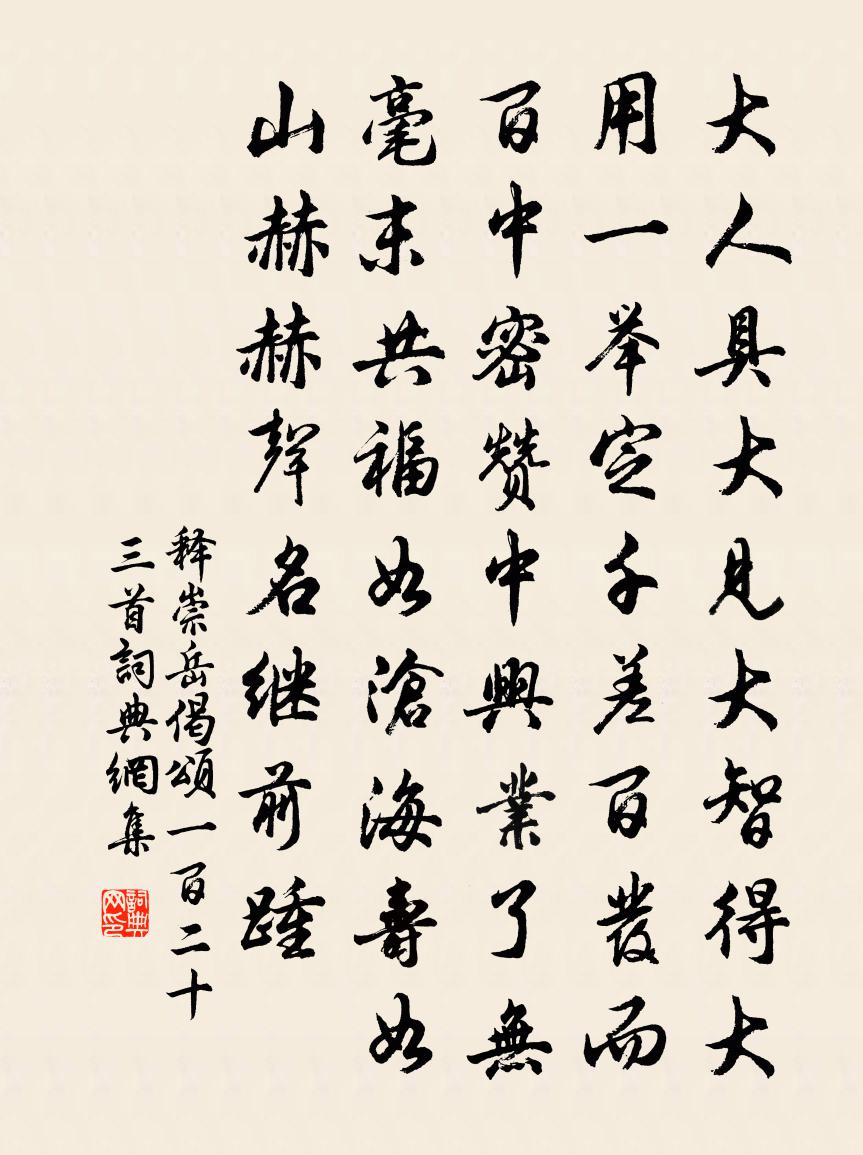 大人具大見大智得大
用一举定千差百發而
百中密赞中興業了無
毫末共福如滄海壽如
山赫赫聲名继前踵
释崇岳偈頌一百二十
三首詞典網集
詞典
网印